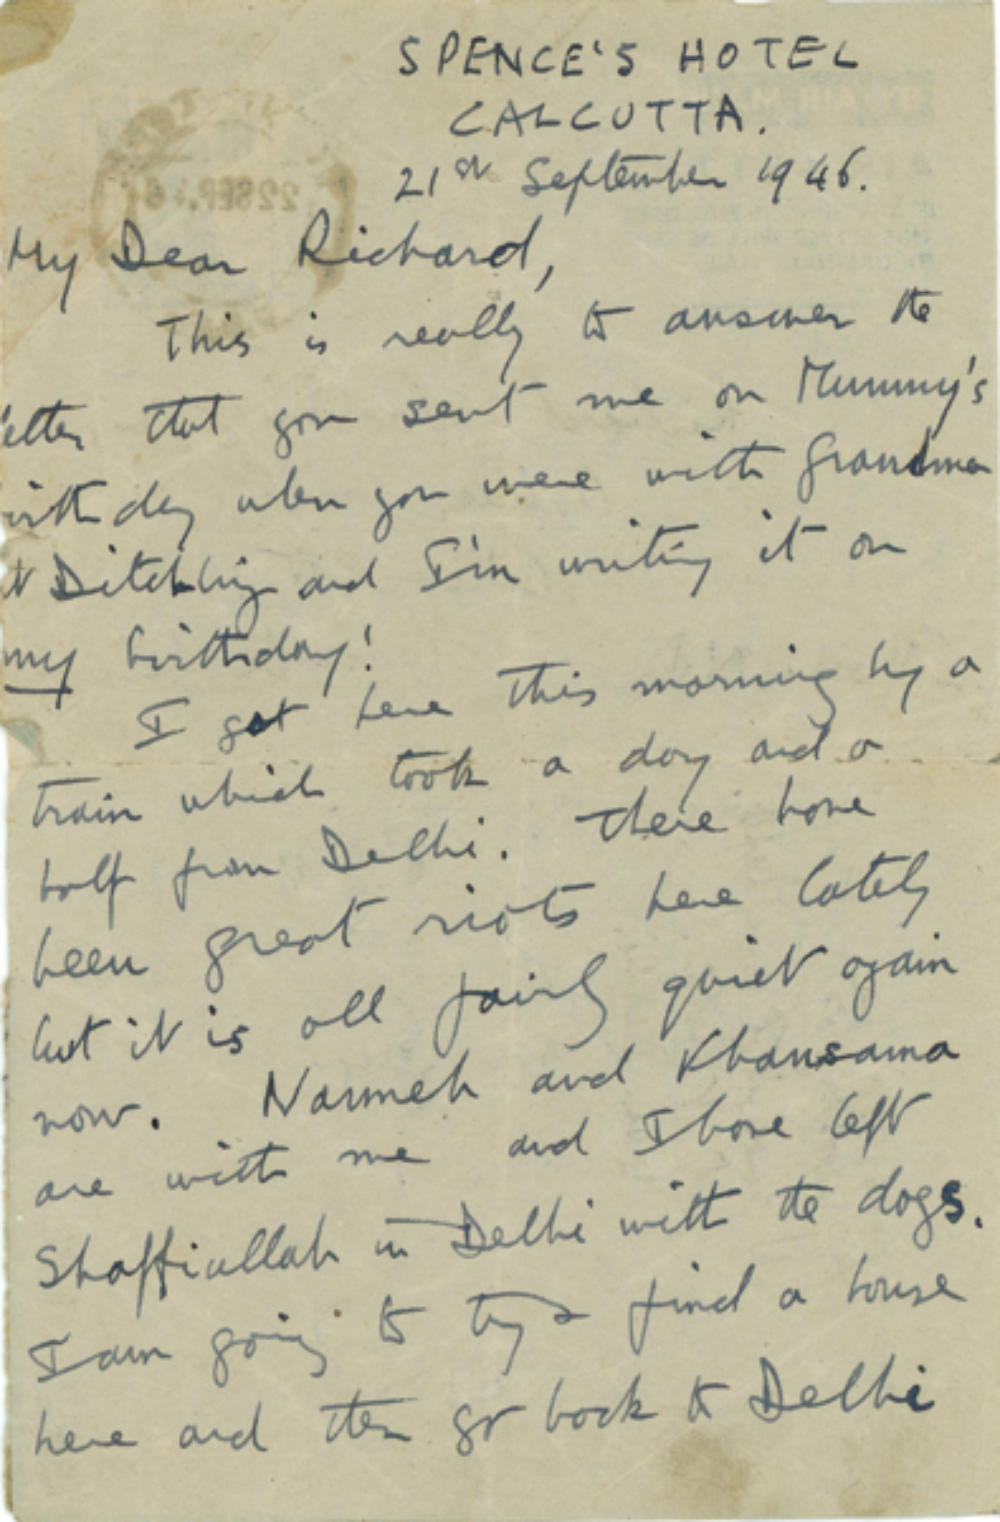 SPENCE'S HOTEL
CALCUTTA.
21st September 1946.
22SEP.46
My Dear Richard,
This is really to answer the
letter that you sent me on Mummy's
birthday when you were with Grandma
at Ditchling and I'm writing it on
my birthday!
I got here this morning by a
train which took a day and a
half from Delhi. There have
been great riots here lately
but it is all fairly quiet again
now. Narmeh and Khansama
are with me and I have left
Shaffiullah in Delhi with the dogs.
I am going to try & find a house
here and then go back to Delhi